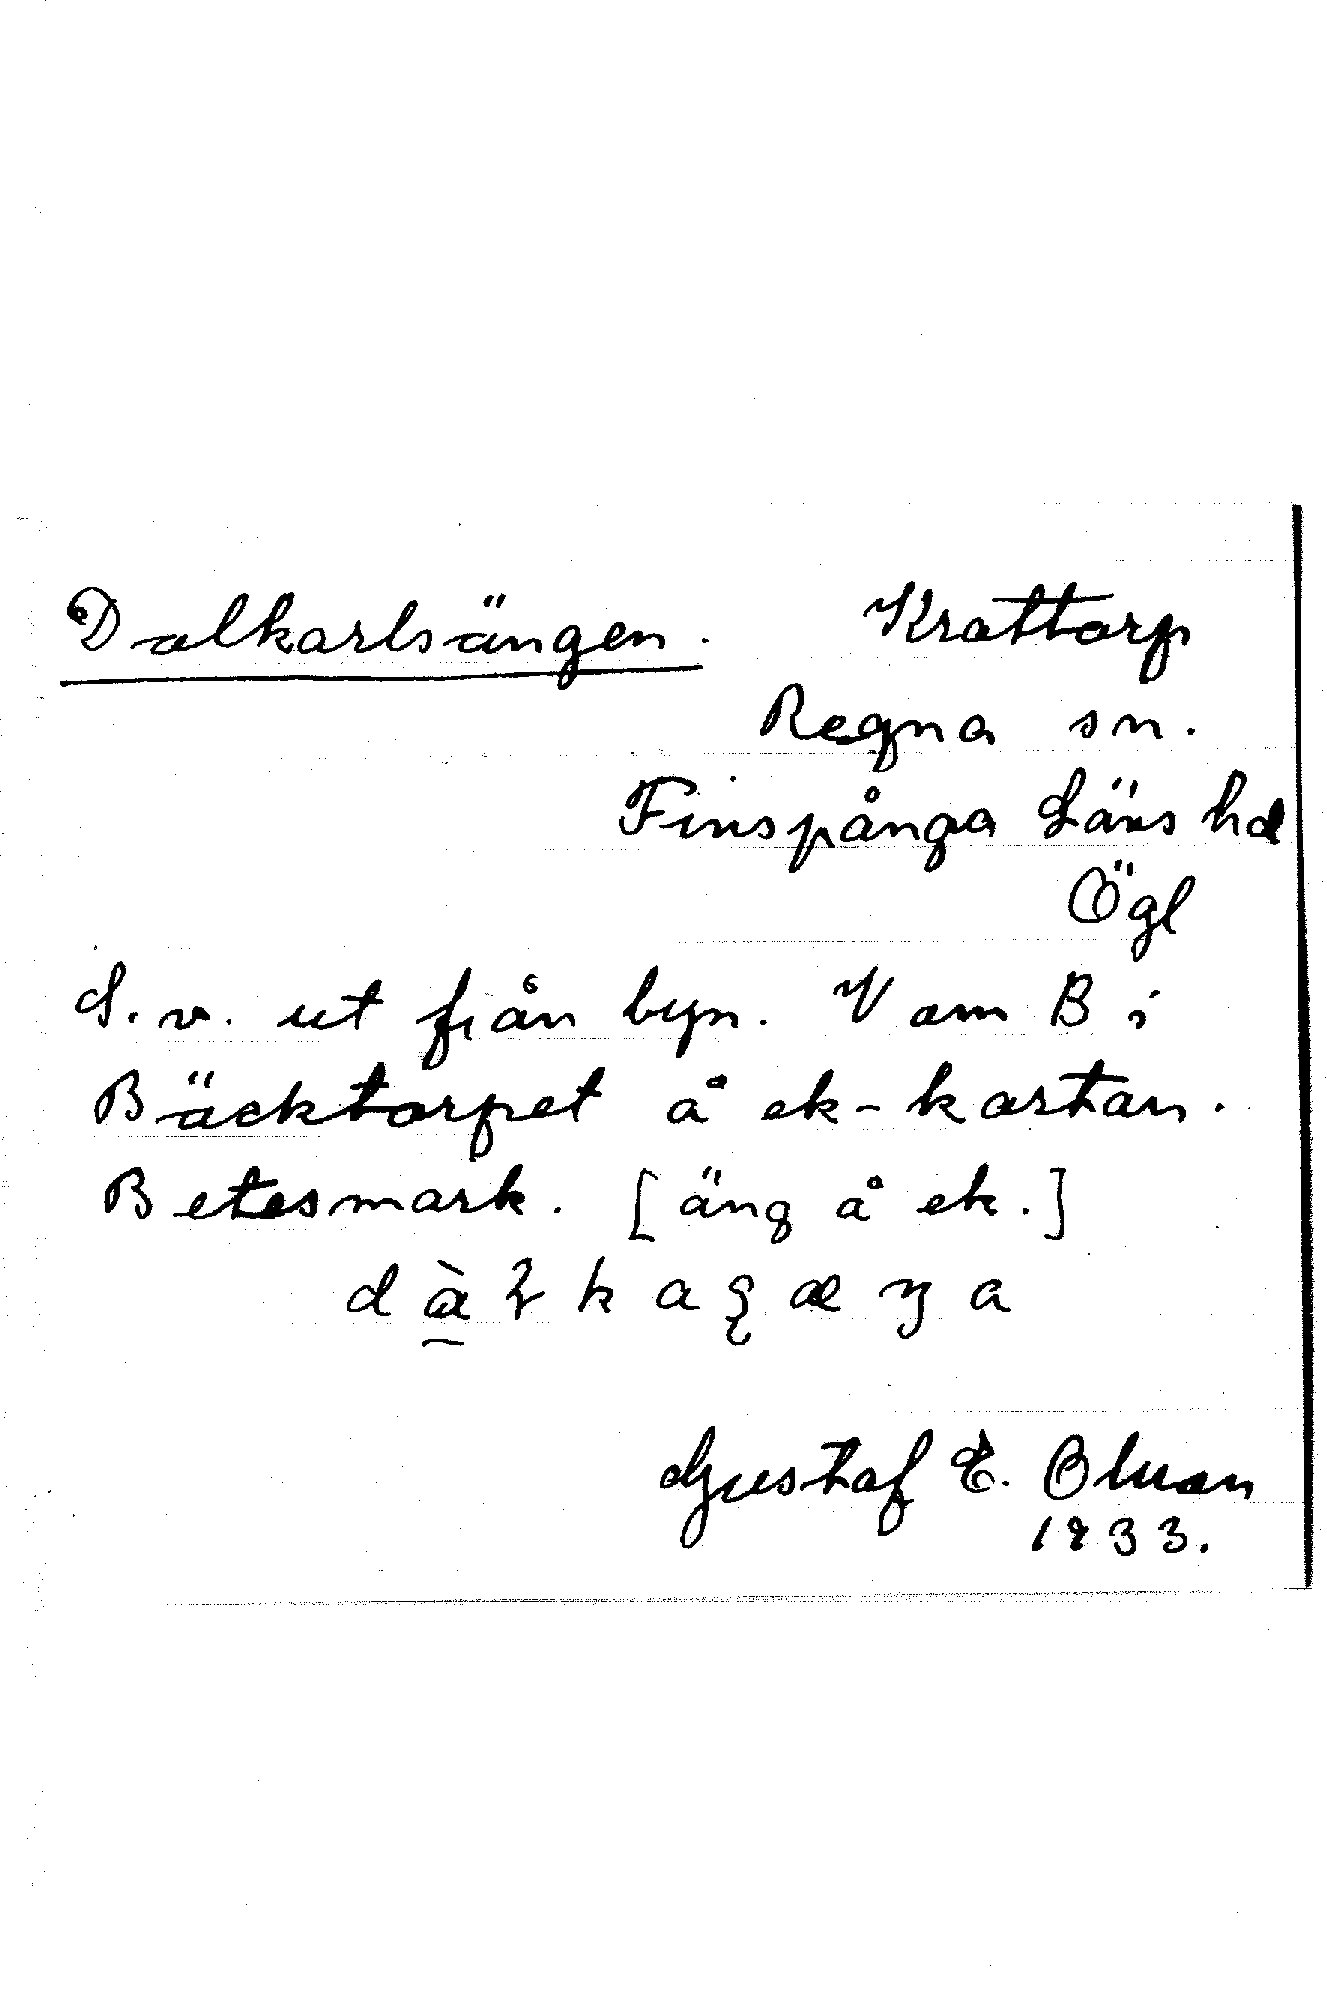 Dalkarlsängen. Krattorp
Regna sn.
Finspånga Läns hd
Ögl
S.v. ut från byn. V om B i
Bäcktorpet å ek-kartan.
Betesmark. [äng å ek.]
Gustaf E. Bluan
1933.